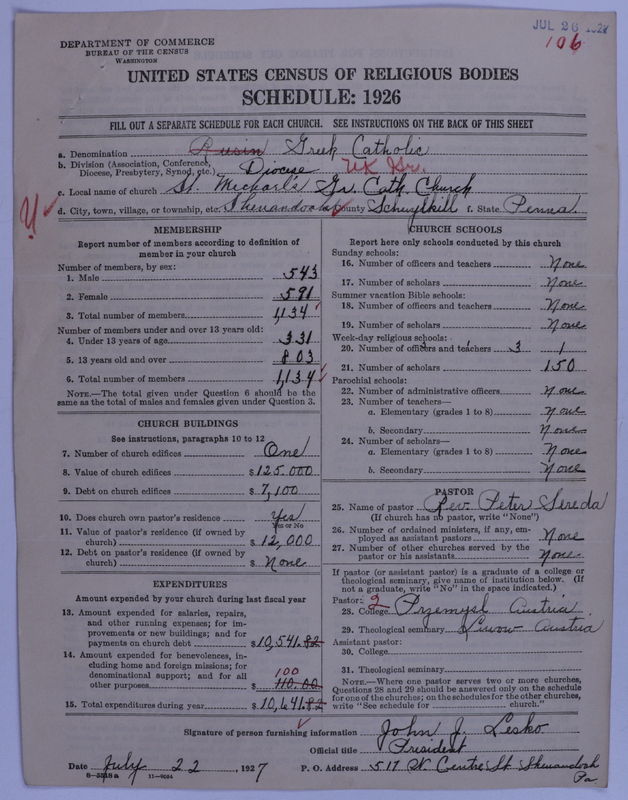 JUL 26 1927
106
DEPARTMENT OF COMMERCE
BUREAU OF THE CENSUS
WASHINGTON
UNITED STATES CENSUS OF RELIGIOUS BODIES
SCHEDULE: 1926
FILL OUT A SEPARATE SCHEDULE FOR EACH CHURCH. SEE INSTRUCTIONS ON THE BACK OF THIS SHEET
a. Denomination Rusin Greek Catholic
b. Division (Association, Conference, Diocese, Presbytery, Synod, etc.) Diocise Uk Gr.
c. Local name of church St. Michaels Gr. Cath. Church
d. City, town, village, or township, etc. Shenandoah County Schuylkill f. State Penna
MEMBERSHIP
Report number of members according to definition of
member in your church
Number of members, by sex:
1. Male 543
2. Female 591
3. Total number of members 1,134
Number of members under and over 13 years old:
4. Under 13 years of age 331
5. 13 years old and over 803
6. Total number of members 1,134
NOTE.—The total given under Question 6 should be the
same as the total of males and females given under Question 3.
CHURCH BUILDINGS
See instructions, paragraphs 10 to 12
7. Number of church edifices One
8. Value of church edifices $ 125.000
9. Debt on church edifices $ 7,100
10. Does church own pastor's residence Yes
Yes or No
11. Value of pastor's residence (if owned by
church) $ 12,000
12. Debt on pastor's residence (if owned by
church) $ None
EXPENDITURES
Amount expended by your church during last fiscal year
13. Amount expended for salaries, repairs,
and other running expenses; for im-
provements or new buildings; and for
payments on church debt $ 10,541.82
14. Amount expended for benevolences, in-
cluding home and foreign missions; for
denominational support; and for all
other purposes $ 110.00 100
15. Total expenditures during year $ 10,641.82
CHURCH SCHOOLS
Report here only schools conducted by this church
Sunday schools:
16. Number of officers and teachers None
17. Number of scholars None
Summer vacation Bible schools:
18. Number of officers and teachers None
19. Number of scholars None
Week-day religious schools:
20. Number of officers and teachers 3 1
21. Number of scholars 150
Parochial schools:
22. Number of administrative officers None
23. Number of teachers—
a. Elementary (grades 1 to 8) None
b. Secondary None
24. Number of scholars—
a. Elementary (grades 1 to 8) None
b. Secondary None
PASTOR
25. Name of pastor Rev. Peter Sereda
(If church has no pastor, write "None")
26. Number of ordained ministers, if any, em-
ployed as assistant pastors None
27. Number of other churches served by the
pastor or his assistants None
If pastor (or assistant pastor) is a graduate of a college or
theological seminary, give name of institution below. (If
not a graduate, write "No" in the space indicated.)
Pastor: 2
28. College Przemysl Austria
29. Theological seminary Lwow Austria
Assistant pastor:
30. College
31. Theological seminary
NOTE.—Where one pastor serves two or more churches,
Questions 28 and 29 should be answered only on the schedule
for one of the churches; on the schedules for the other churches,
write "See schedule for church."
Signature of person furnishing information John J. Lesko
Official title President
Date July 22, 1927 P. O. Address 517 N. Centre St Shenandoah
Pa
8-5518a 11-9034